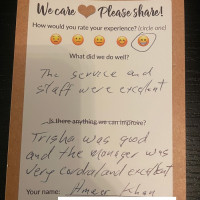 We care Please share!
How would you rate your experience? (circle one)
What did we do well?
The service and
staff were excelent
Is there anything we can improve?
Trisha was good
and the manager was
very cordial and excellent
Your name: Ameer Khan